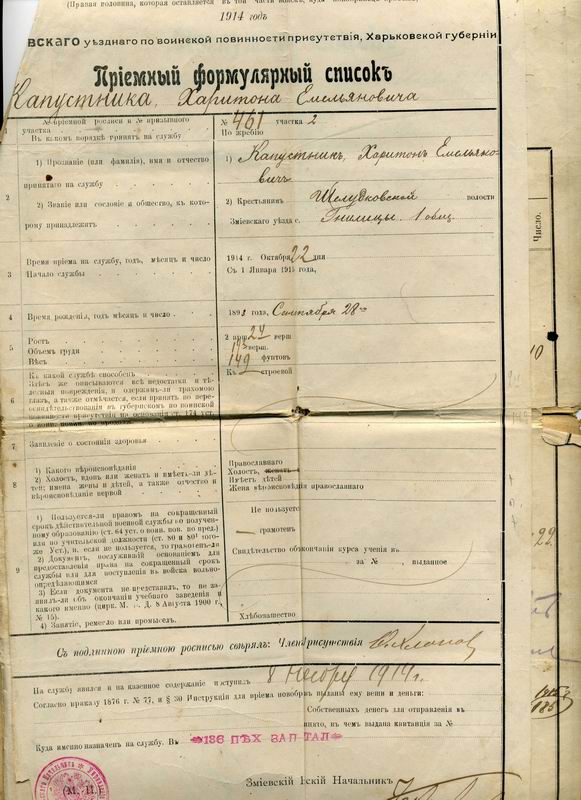 (Правая половина, которая оставляется въ той части войскъ, куда новобранецъ
1914 годъ
вскаго уѣзднаго по воинской повинности присутствія, Харьковской губерніи
Пріемный формулярный списокъ
Капустника, Харитона Емельяновича
№ пріемной росписи и № призывного участка
№ 461 участка 2
Въ какомъ порядкѣ принятъ на службу
По жребію
1) Прозваніе (или фамилія), имя и отчество принятаго на службу
1) Капустникъ, Харитонъ Емельяно-
вичъ
2
2) Званіе или сословіе и общество, къ кото-
рому принадлежитъ
2) Крестьянинъ Шелудковской волости
Зміевскаго уѣзда с. Гнилицы. 1 общ.
Число.
3
Время пріема на службу, годъ, мѣсяцъ и число
1914 г. Октября 22 дня
Начало службы
Съ 1 Января 1915 года,
4
Время рожденія, годъ мѣсяцъ и число
1893 года, Сентября 28
5
Ростъ
2 арш. 2 4/8 верш
Объемъ груди
верш.
Вѣсъ
149 фунтовъ
10
6
Къ какой службѣ способенъ
Къ строевой
Здѣсь же описываются всѣ недостатки и тѣ-
лесныя поврежденія, и одержимъ-ли трахомою
глазъ, а также отмѣчается, если принятъ по пере-
освидѣтельствованію въ губернскомъ по воинской
повинности присутствіи на основаніи ст. 174 уст.
7
Заявленіе о состояніи здоровья
8
1) Какого вѣроисповѣданія
Православнаго
2) Холостъ, вдовъ или женатъ и имѣетъ-ли дѣ-
тей; имена жены и дѣтей, а также отчество и
вѣроисповѣданіе первой
Холостъ, женатъ
Имѣетъ дѣтей
Жена вѣроисповѣданія православнаго
9
1) Пользуется-ли правомъ на сокращенный
срокъ дѣйствительной военной службы по получен-
ному образованію (ст. 64 уст. о воин. пов. по прод.)
или по учительской должности (ст. 80 и 80¹ того-
же Уст.), и, если не пользуется, то грамотенъ-ли
Не пользуется
грамотенъ
2) Документъ, послужившій основаніемъ для
предоставленія права на сокращенный срокъ
службы или для поступленія въ войска вольно-
опредѣляющимся
Свидѣтельство объ окончаніи курса ученія въ
за № , выданное
22
3) Если документа не представилъ, то не за-
явилъ-ли объ окончаніи учебнаго заведенія и
какого именно (цирк. М. В. Д. 8 Августа 1900 г.,
№ 15).
4) Занятіе, ремесло или промыселъ.
Хлѣбопашество
Съ подлинною пріемною росписью свѣрялъ: Членъ Присутствія
На службу явился и на казенное содержаніе поступилъ 8 1914 г.
Согласно приказу 1876 г. № 77, и § 30 Инструкціи для пріема новобр. выданы ему вещи и деньги:
Собственныхъ денегъ для отправленія въ
нято, въ чемъ выдана квитанція за №
Куда именно назначенъ на службу. Въ 136 ПѢХ ЗАП ТАЛ
(М. П.)
Начальникъ